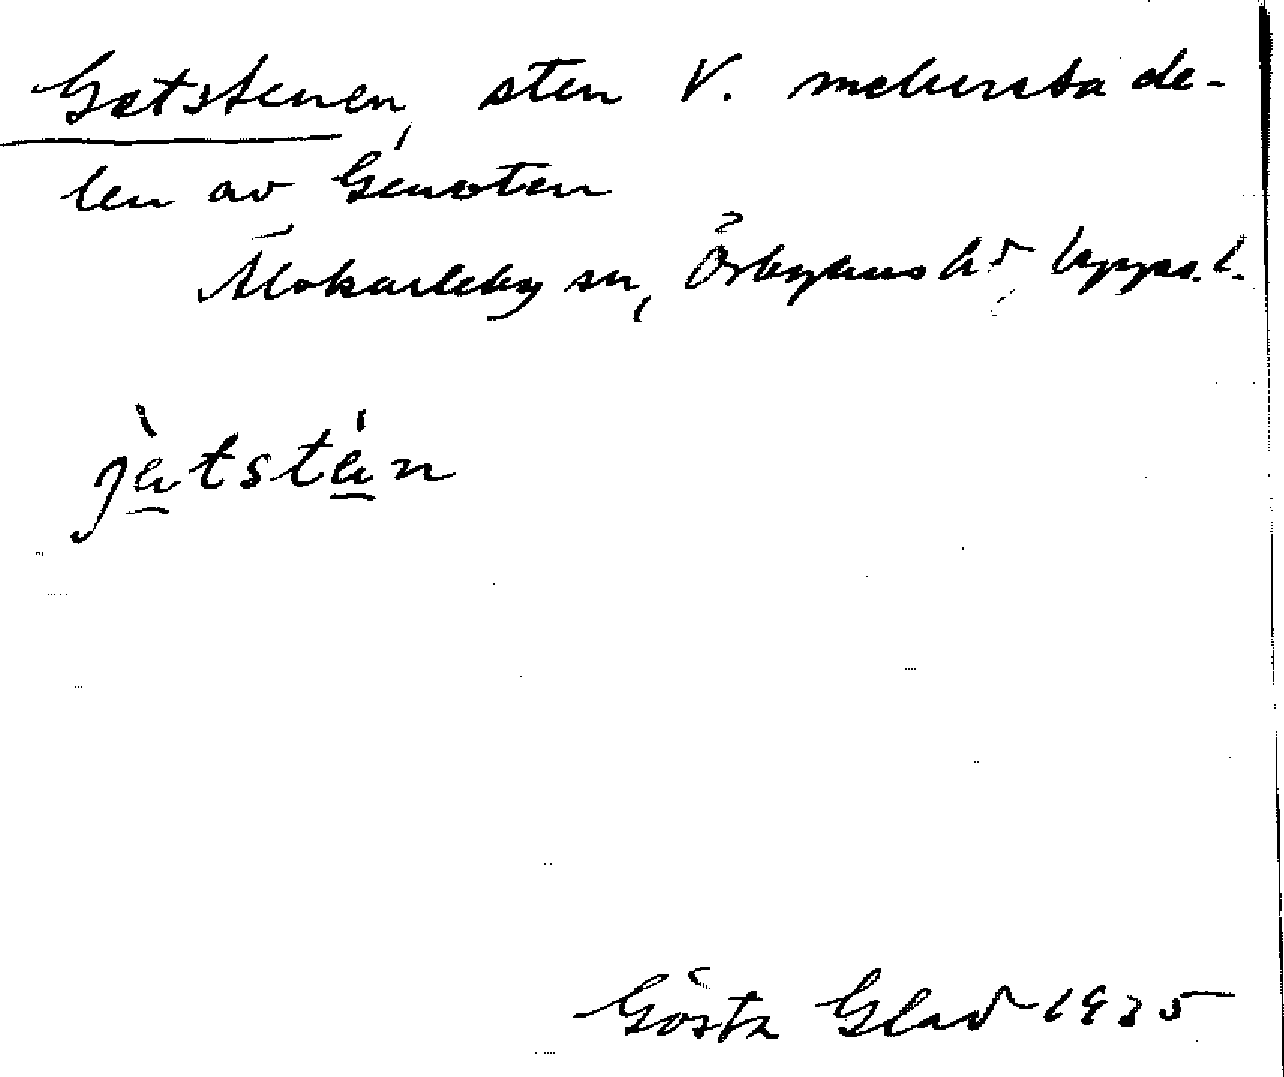 Getstenen, sten V. mellersta de-
len av
Älvkarleby sn, Örbyhus hd Upps. l.
jetsten
Gösta Glad 1935